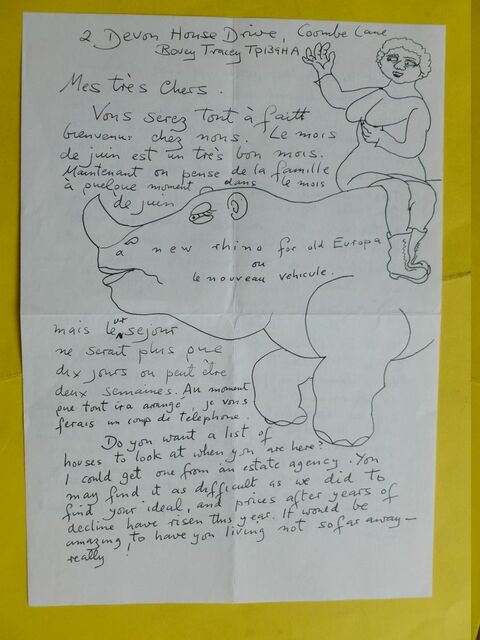 2 Devon House Drive, Coombe Lane
Bovey Tracey TQ139HA
Mes très Chers.
Vous serez tout à fait
bienvenus chez nous. Le mois
de juin est un très bon mois.
Maintenant on pense de la famille
à quelque moment dans le mois
de juin
a new rhino for old Europa
ou
le nouveau vehicule.
mais leur sejour
ne serait plus que
dix jours ou peut être
deux semaines. Au moment
que tout ira arrangé, je vous
ferais un coup de téléphone.
Do you want a list of
houses to look at when you are here?
I could get one from an estate agency. You
may find it as difficult as we did to
find your ideal, and prices after years of
decline have risen this year. It would be
amazing to have you living not so far away—
really!